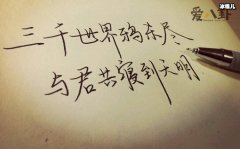 冰糖儿
爱八卦
三千世界鸦杀尽
与君共寝到天明